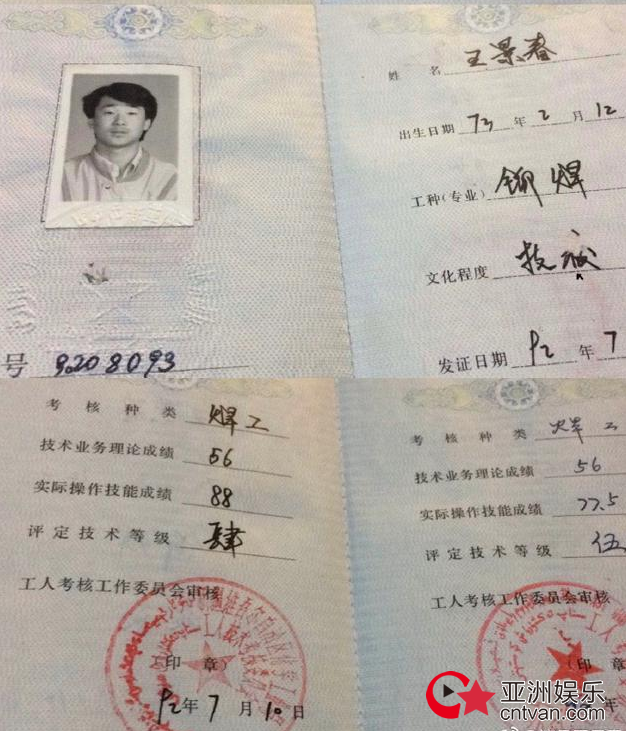 姓名 王景春
出生日期 73 年 2 月 12
工种(专业) 铆焊
文化程度 技校
发证日期 92 年 7
号 9208093
考核种类 焊工
技术业务理论成绩 56
实际操作技能成绩 88
评定技术等级 肆
工人考核工作委员会审核
印章
92年 7 月 10 日
考核种类 焊工
技术业务理论成绩 56
实际操作技能成绩 77.5
评定技术等级 伍
工人考核工作委员会审核
(印
年
亚洲娱乐
cntvan.com